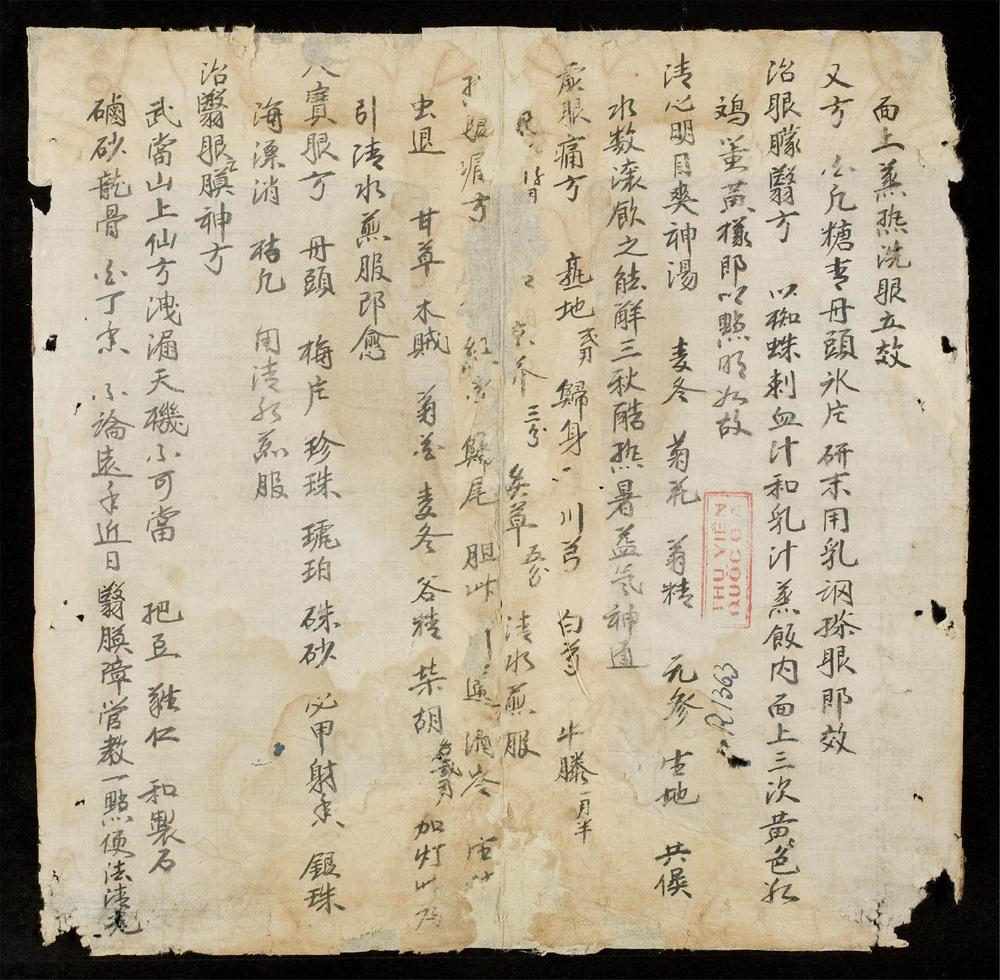 面上蒸热洗眼立效
又方 白凡糖青丹頭氷片研末用乳調搽眼即效
治眼朦翳方 以蜘蛛刺血汁和乳汁蒸飯内面上三次黄色如
鸡蛋黄樣即以點明如故
清心明目爽神湯 麦冬 菊花 蒭精 元参 生地 共俟
水数滚飲之能觧三秋酷热暑益氣神通
虚眼痛方 熟地 弍月 歸身 川芎 白芍 牛膝 一月半
京參 三分 炙草 五分 清水煎服
眼 方 歸尾 胆艸 通
虫退 甘草 木賊 菊花 麦冬 谷精 柴胡 各弍月 加灯艸為
引清水煎服即愈
八寶眼方 丹頭 梅片 珍珠 琥珀 硃砂 必甲 射香 銀珠
海漂消 枯凡 用清水煎服
治翳眼膜神方
武當山上仙方洩漏天機不可當 把豆 難仁 和製石
磠砂 龍骨 白丁香 不論遠年近日翳膜障管教一點便法清光
THƯ VIỆN
QUỐC GIA
R1363